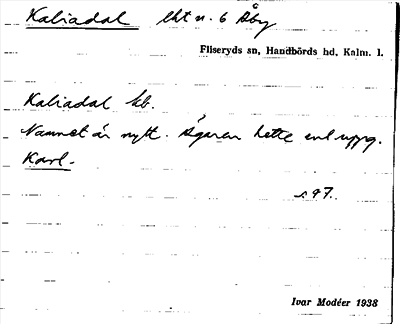 Kaliadal lht u. 6 Åby
Fliseryds sn, Handbörds hd, Kalm. l.
Kaliadal hb.
Namnet är nytt. Ägaren hette enl uppg.
Karl.
s. 97.
Ivar Modéer 1938